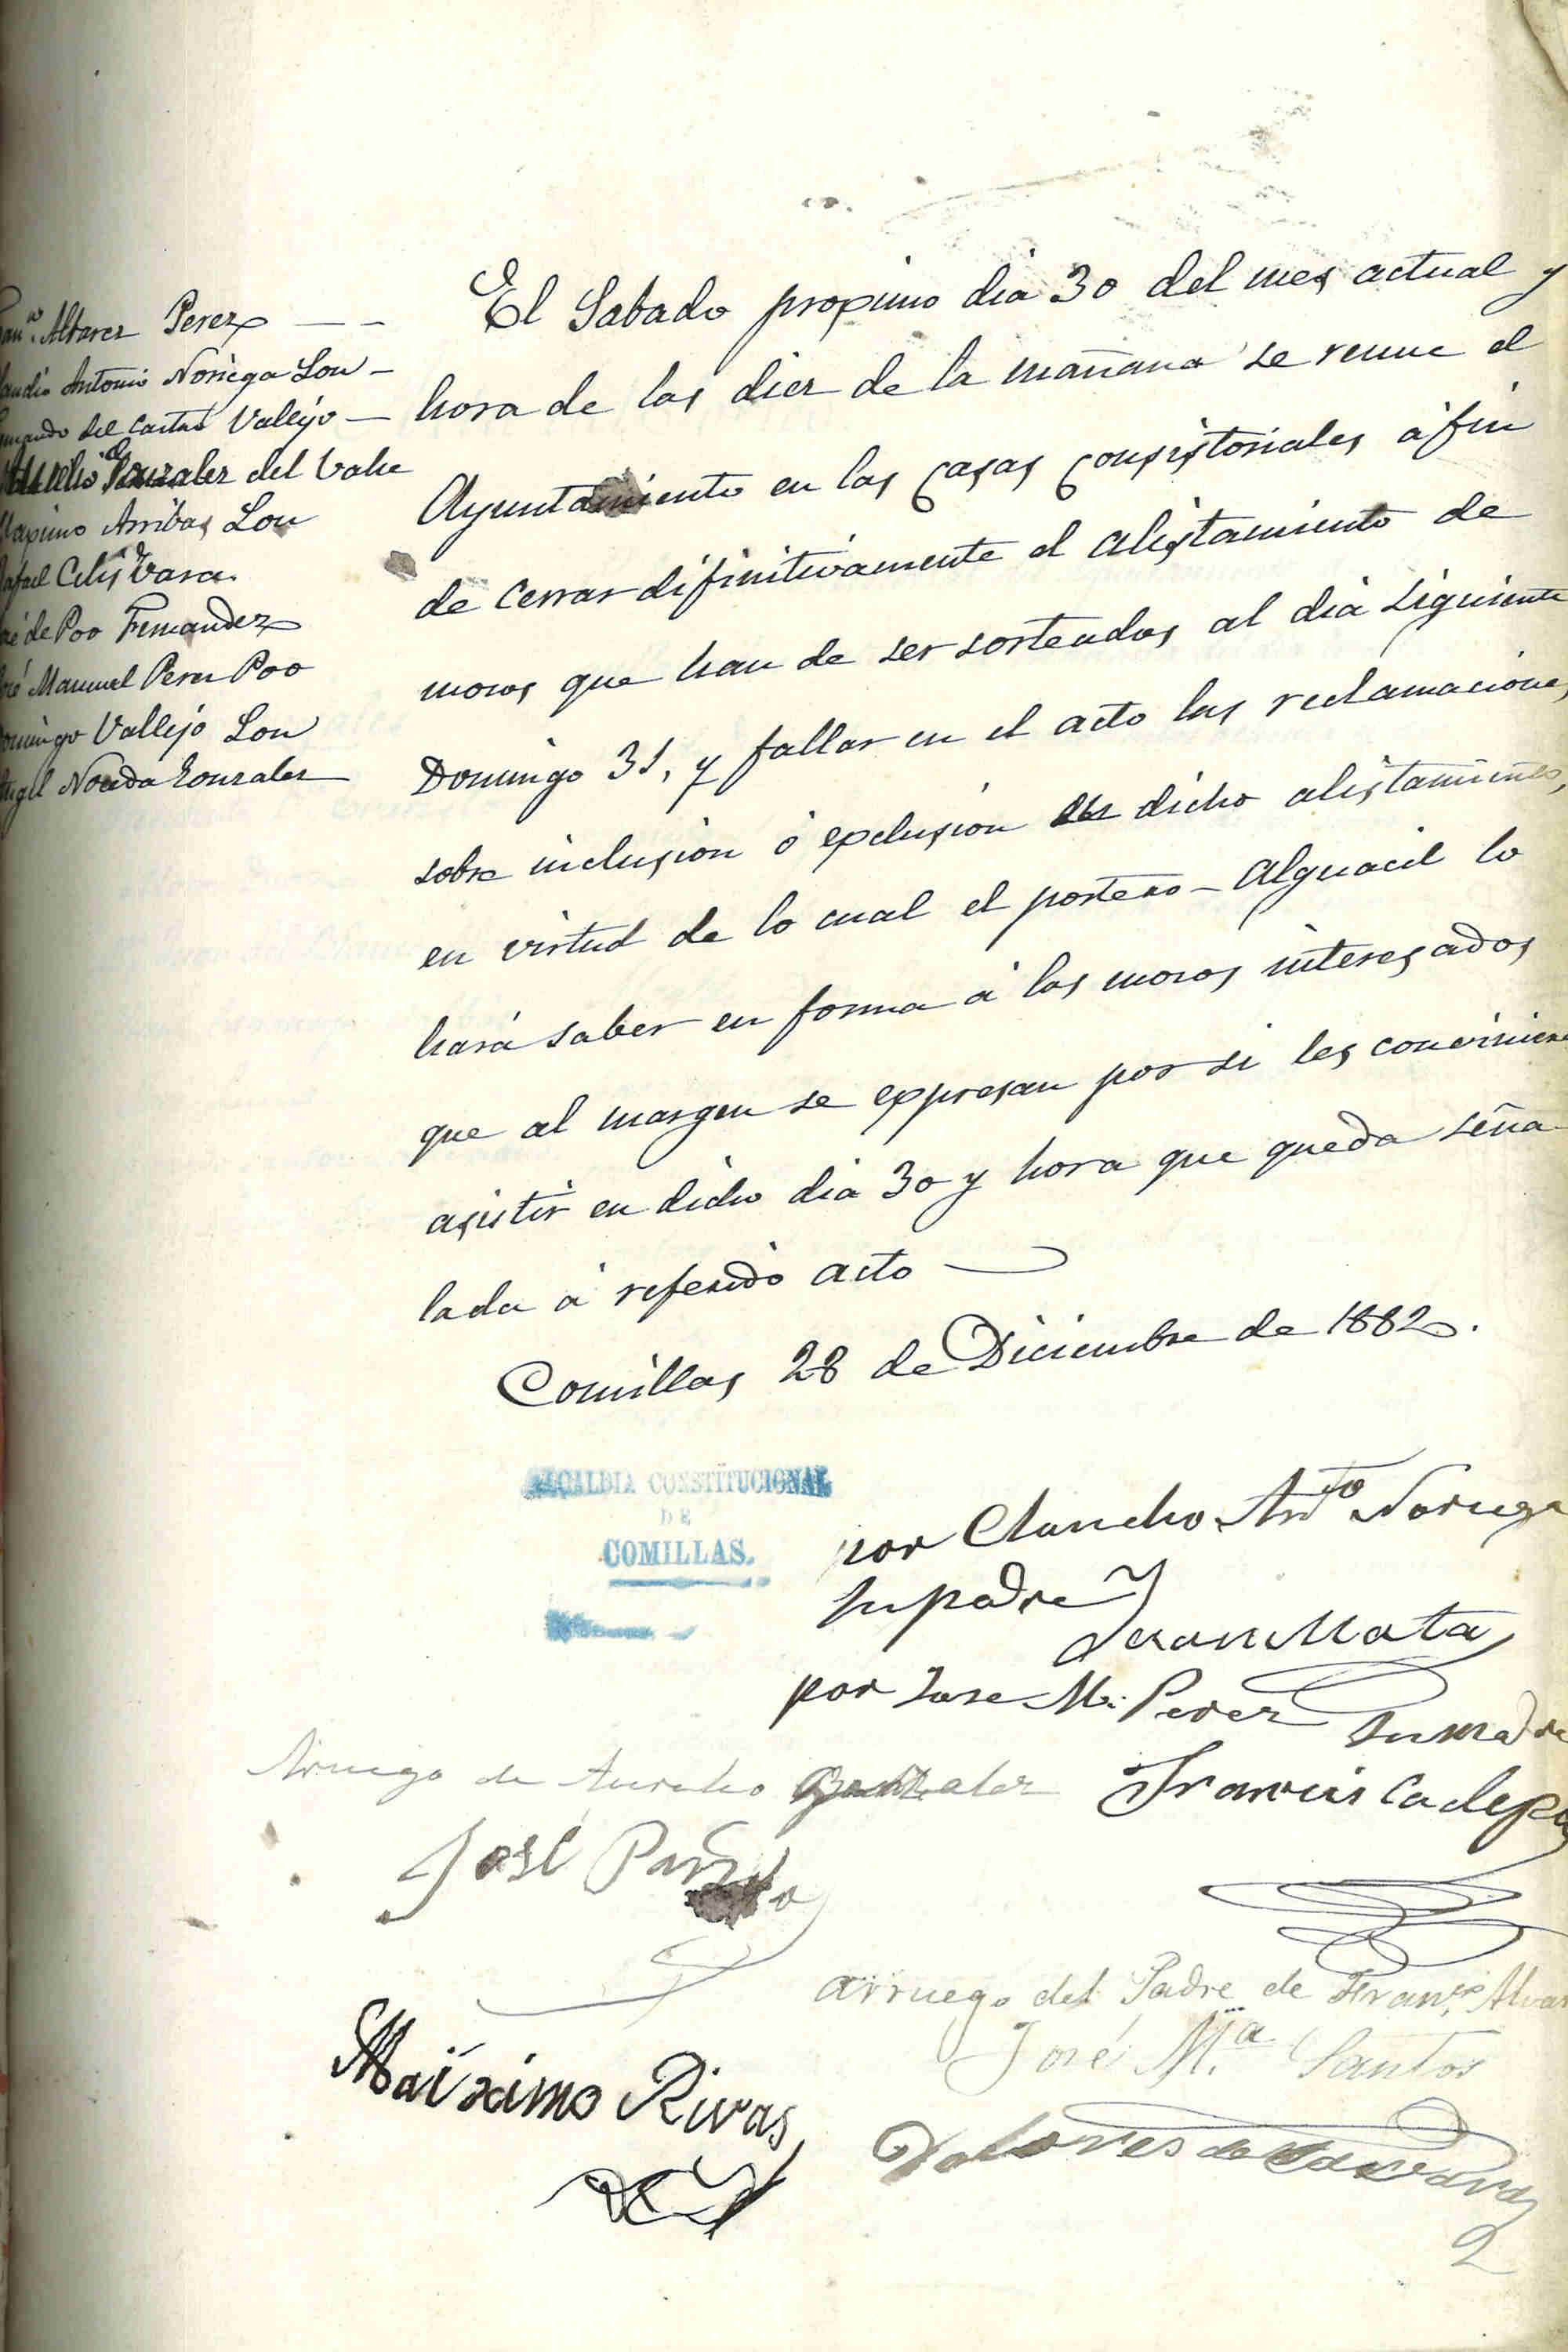 Alvarez Perez
Antonio Noriega Lon
del Castro Vallejo
Aurelio Gonzalez del Valle
Maximo Arribas Lon
Rafael Celis Vara.
José de Poo Fernandez
José Manuel Perez Poo
Domingo Vallejo Lon
Angel Noceda Gonzalez
El Sabado proximo dia 30 del mes actual y
hora de las diez de la mañana se reune el
Ayuntamiento en las casas consistoriales á fin
de cerrar difinitivamente el alistamiento de
mozos que han de ser sorteados al dia siguiente
Domingo 31, y fallar en el acto las reclamaciones
sobre inclusion ó exclusion en dicho alistamiento,
en virtud de lo cual el portero-Alguacil lo
hará saber en forma á los mozos interesados
que al margen se expresan por si les conviniere
asistir en dicho dia 30 y hora que queda seña-
lada á referido acto
Comillas 28 de Diciembre de 1882.
ALCALDIA CONSTITUCIONAL
DE
COMILLAS.
por Claudio Antº Noriega
su padre
Juan Mata
por Jose Ml. Perez su madre
Francisca de Poo
Arruego de Aurelio Gonzalez
José
arruego del Padre de Franco. Alvarez
José M.ª Santos
Maiximo Rivas
Dolores de
2